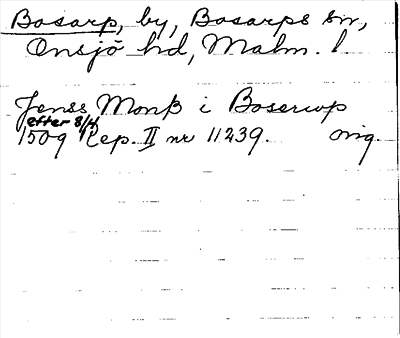 Bosarp, by, Bosarps sn,
Onsjö hd, Malm. l.
Jenss Monß i Boserop
efter 8/4
1509 Rep. II nr 11239. orig.